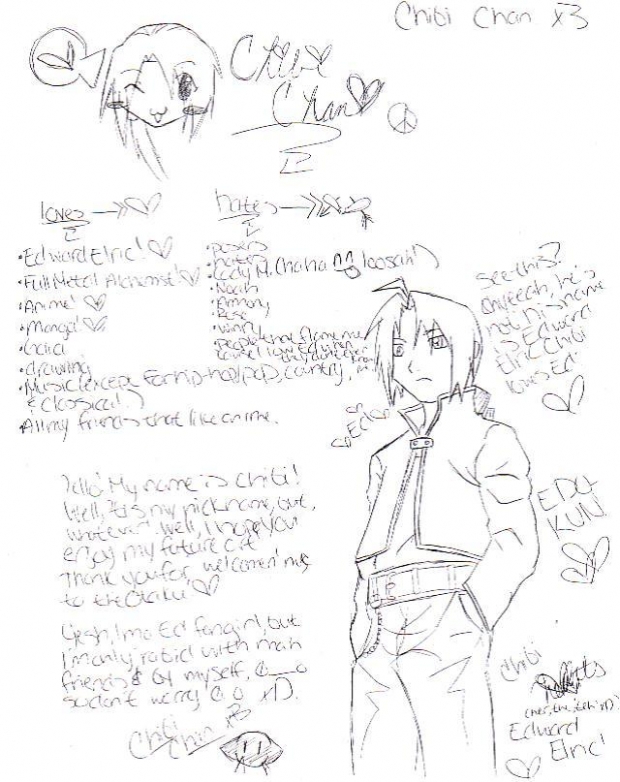 Chibi Chan x3
Chibi
Chan
loves
hates
• Edward Elric!
• Full Metal Alchemist!
• Anime!
• Manga!
• drawing
• Music (except for hip-hop, pop, country,
& classical!)
• All my friends that like anime.
• posers
• haters
• Noah
• Armony
• Rose
• Winry
• people that flame me
see this?
he's
hot! his name
is Edward
Elric. Chibi
loves Ed!
Ed
EDO
KUN!
Hello! My name is Chibi!
Well, 'tis my nickname, but,
whatever. Well, I hope you
enjoy my future art
Thank you for welcomen' me,
to theOtaku
Yesh, I'm a Ed fangirl, but
I'm only rabid with mah
friends & by myself, o__o
so don't worry o.o xD.
Chibi
Chan x3
Chibi
Edward
Elric!